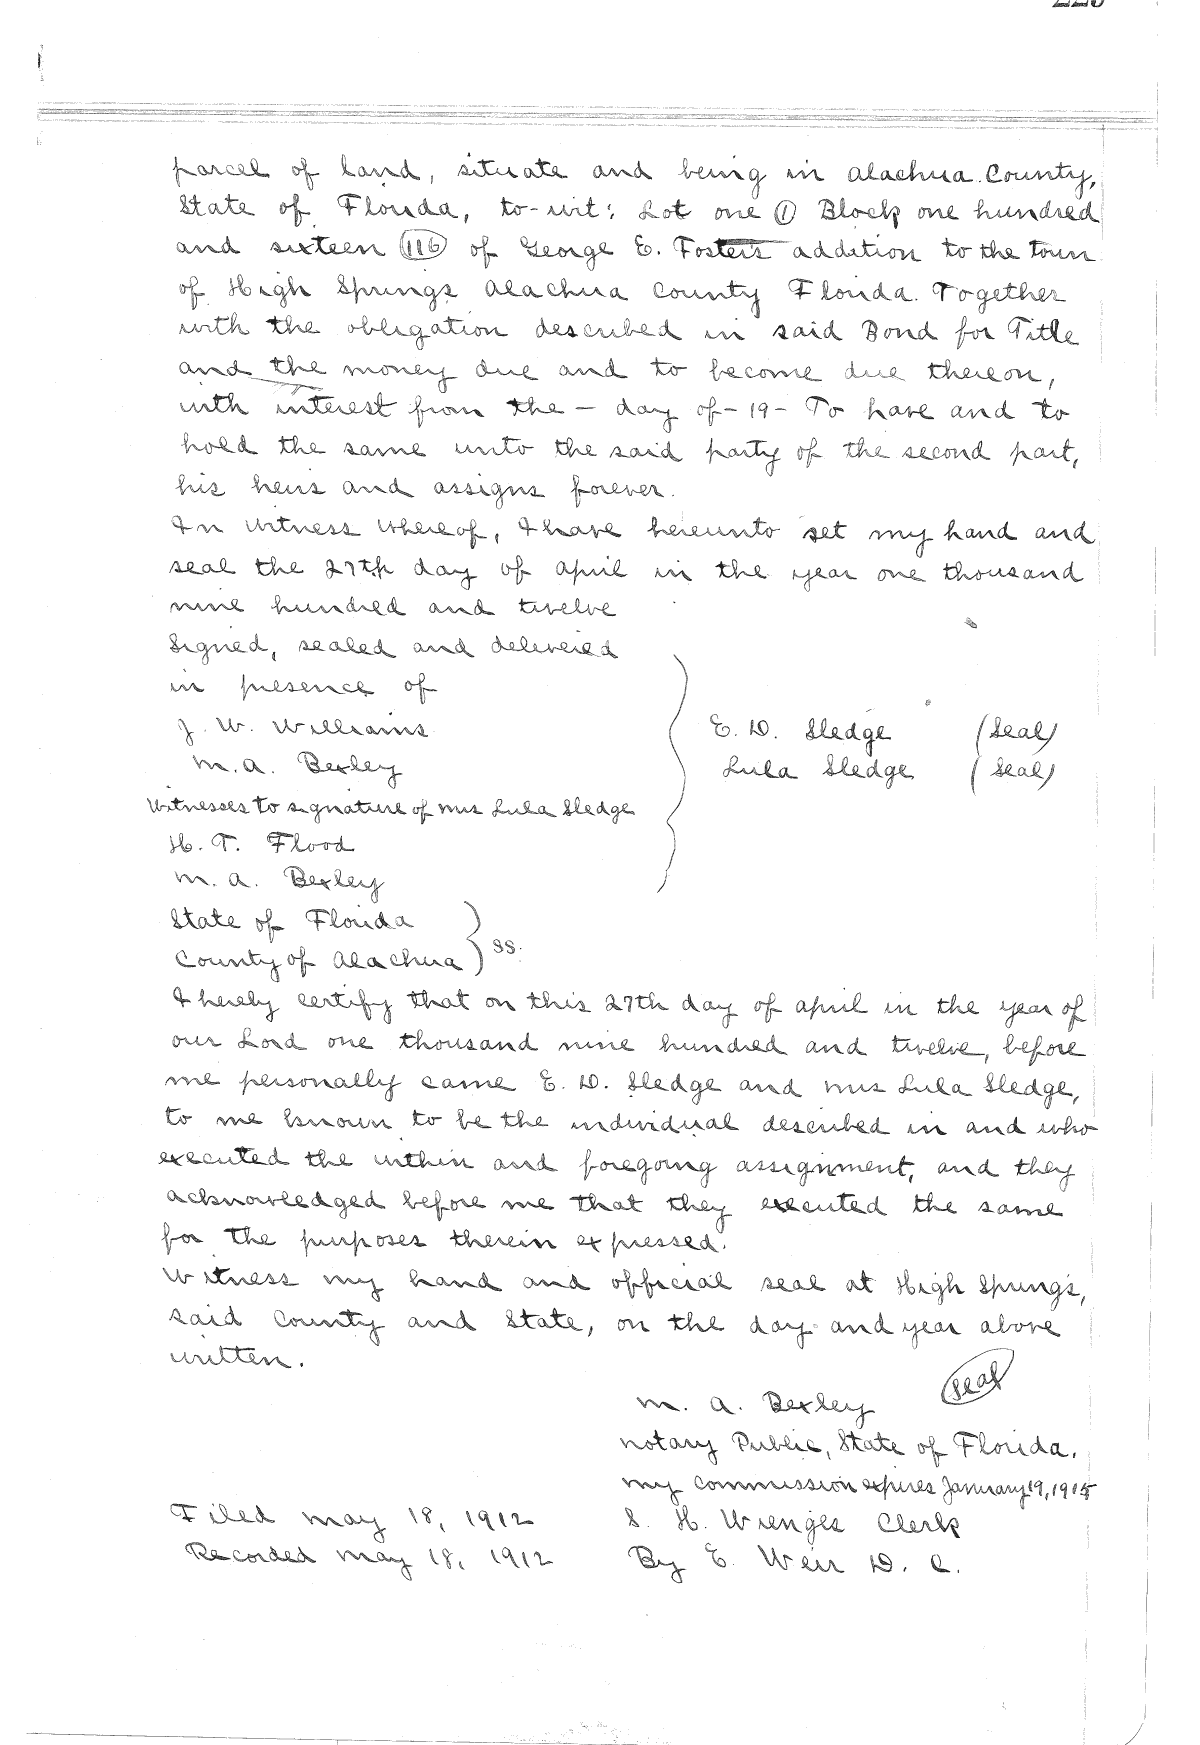 parcel of land, situate and being in Alachua County,
State of Florida, to-wit: Lot one (1) Block one hundred
and sixteen (116) of George E. Foster's addition to the town
of High Springs Alachua County Florida. Together
with the obligation described in said Bond for Title
and the money due and to become due thereon,
with interest from the - day of - 19 - To have and to
hold the same unto the said party of the second part,
his heirs and assigns forever.
In Witness Whereof, I have hereunto set my hand and
seal the 27th day of April in the year one thousand
nine hundred and twelve
Signed, sealed and delivered
in presence of
J. W. Williams
M. A. Bexley
E. D. Sledge (Seal)
Lula Sledge (Seal)
Witnesses to signature of Mrs Lula Sledge
H. T. Flood
M. A. Bexley
State of Florida
County of Alachua } SS.
I hereby certify that on this 27th day of April in the year of
our Lord one thousand nine hundred and twelve, before
me personally came E. D. Sledge and Mrs Lula Sledge,
to me known to be the individual described in and who
executed the within and foregoing assignment, and they
acknowledged before me that they executed the same
for the purposes therein expressed.
Witness my hand and official seal at High Springs,
said County and State, on the day and year above
written.
M. A. Bexley (Seal)
Notary Public, State of Florida.
My commission expires January 19, 1915
Filed May 18, 1912
Recorded May 18, 1912
S. H. Wienges Clerk
By E. Weir D. C.